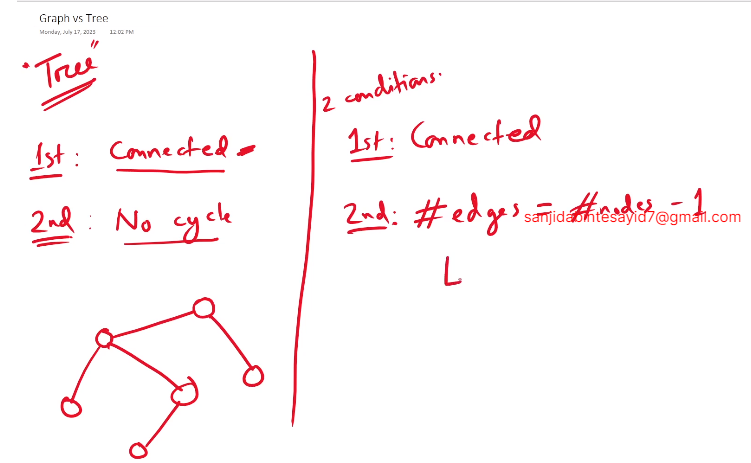 Graph vs Tree
Monday, July 17, 2023 12:02 PM
"Tree"
1st: Connected -
2nd: No cycle
2 conditions.
1st: Connected
2nd: #edges = #nodes - 1
sanjidabintesayid7@gmail.com
L